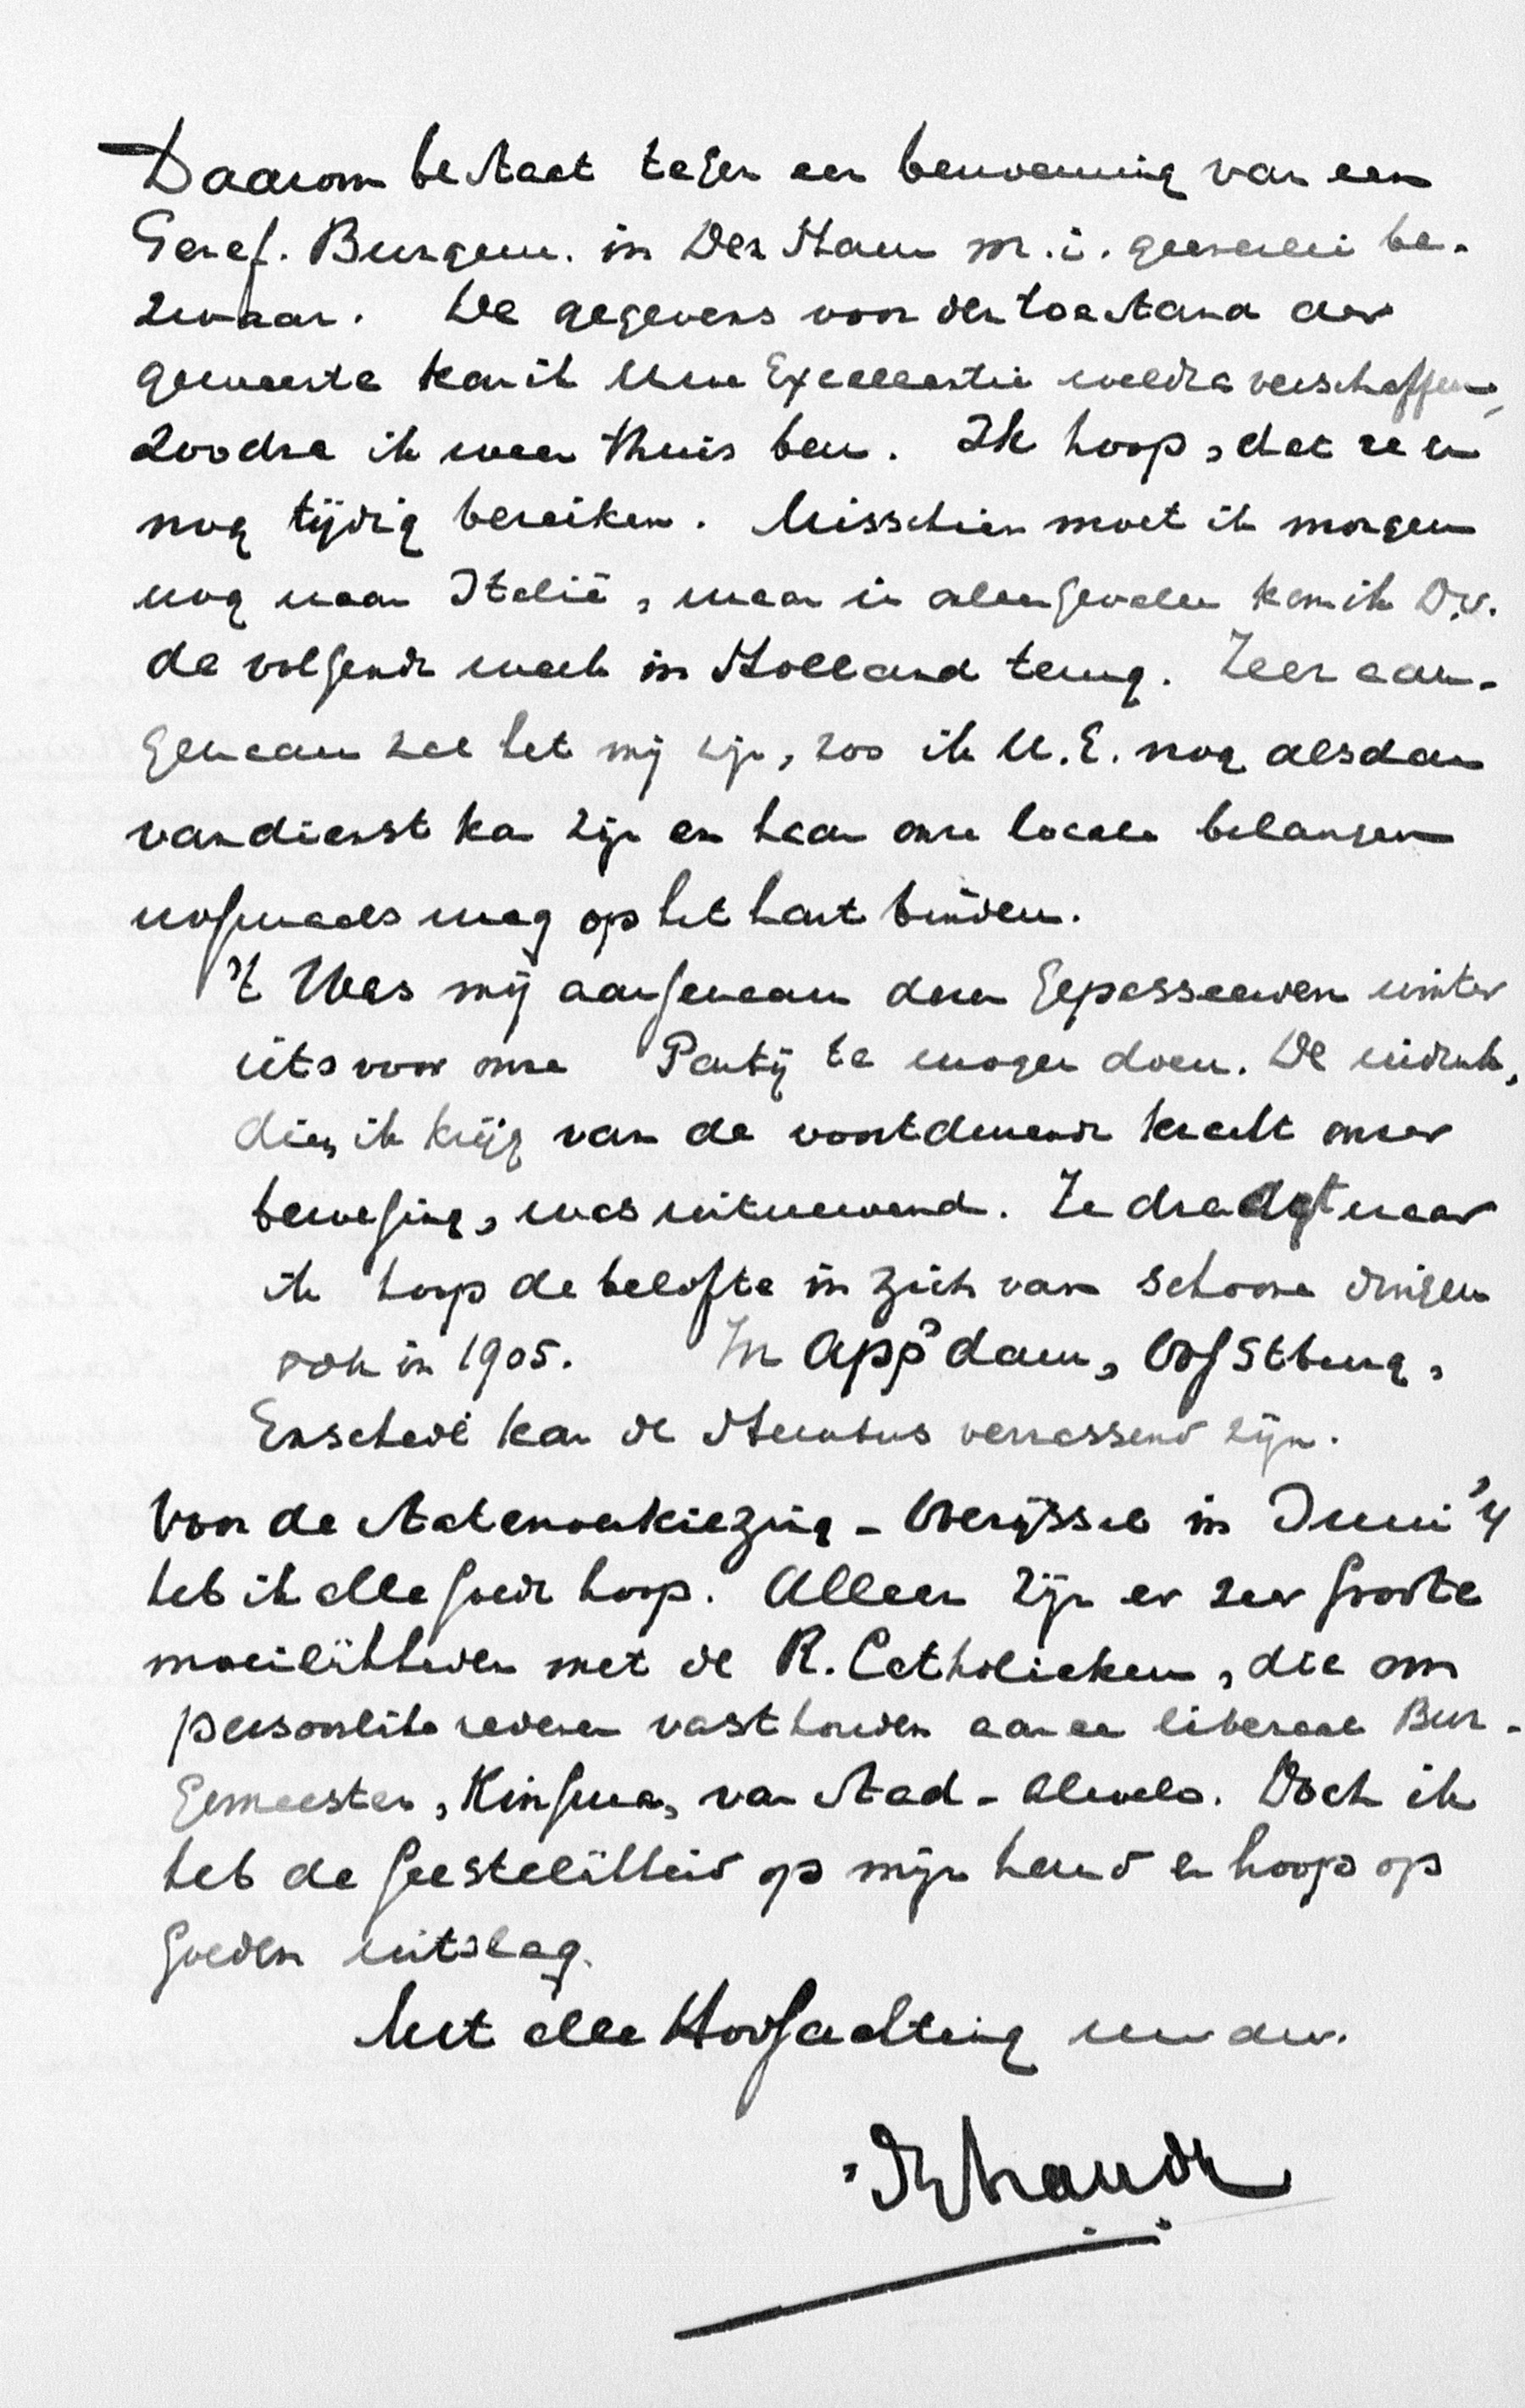 Daarom bestaat tegen een benoeming van een
Geref. Burgem. in Den Ham m.i. geenerlei be-
zwaar. De gegevens voor den toestand der
gemeente kan ik Uwe Excellentie weldra verschaffen,
zoodra ik weer thuis ben. Ik hoop, dat ze U
nog tijdig bereiken. Misschien moet ik morgen
nog naar Italië, maar in allen gevalle kom ik D.V.
de volgende week in Holland terug. Zeer aan-
genaam zal het mij zijn, zoo ik U.E. nog alsdan
van dienst kan zijn en haar onze locale belangen
nogmaals mag op het hart binden.
't Was mij aangenaam den gepasseerden winter
iets voor onze Partij te mogen doen. De indruk,
dien ik krijg van de voortdurende kracht onzer
beweging, was uitnemend. Ze draagt naar
ik hoop de belofte in zich van schoone dingen
ook in 1905. In App'dam, Oostburg,
Enschedé kan de stembus verrassend zijn.
Voor de Statenverkiezing - Overijssel in Juni '4
heb ik alle goede hoop. Alleen zijn er zeer groote
moeilijkheden met de R. Catholieken, die om
persoonlijke redenen vasthouden aan een liberale Bur-
gemeester, Kinsma, van Stad-Almelo. Doch ik
heb de geestelijkheid op mijn hand en hoop op
goeden uitslag.
Met alle Hoogachting uw dw.